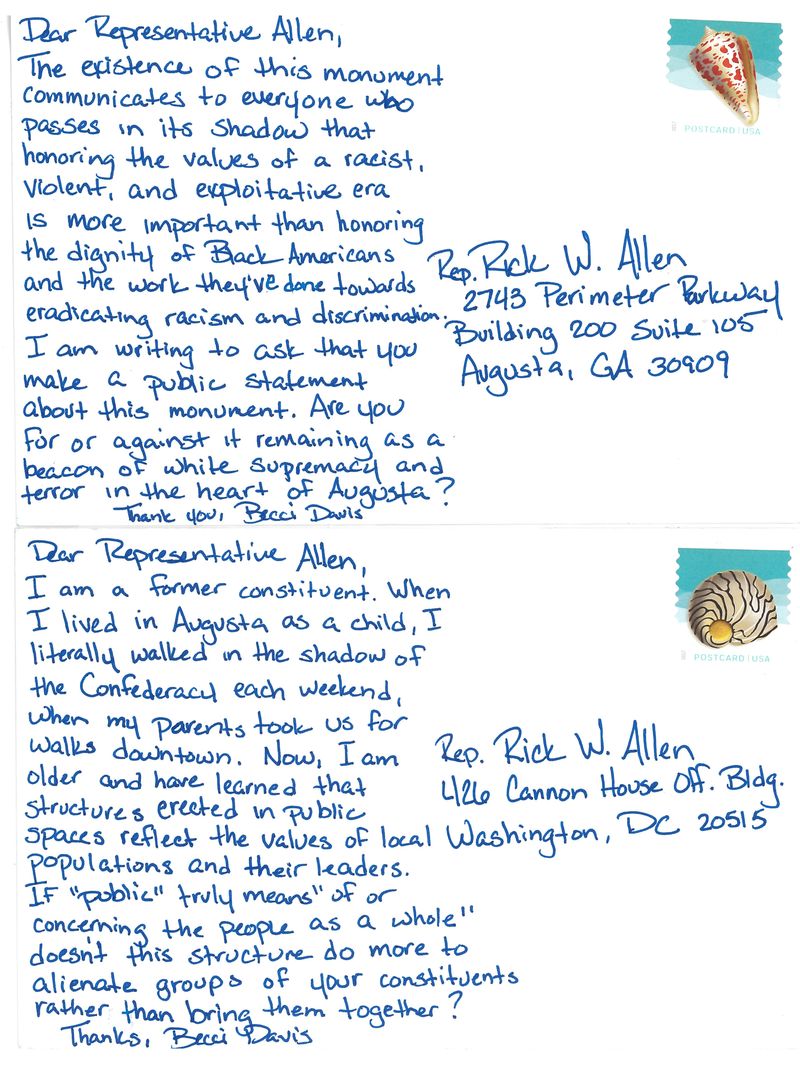 Dear Representative Allen,
The existence of this monument
communicates to everyone who
passes in its shadow that
honoring the values of a racist,
violent, and exploitative era
is more important than honoring
the dignity of Black Americans
and the work they've done towards
eradicating racism and discrimination.
I am writing to ask that you
make a public statement
about this monument. Are you
for or against it remaining as a
beacon of white supremacy and
terror in the heart of Augusta?
Thank you, Becci Davis
POSTCARD | USA
Rep. Rick W. Allen
2743 Perimeter Parkway
Building 200 Suite 105
Augusta, GA 30909
Dear Representative Allen,
I am a former constituent. When
I lived in Augusta as a child, I
literally walked in the shadow of
the Confederacy each weekend,
when my parents took us for
walks downtown. Now, I am
older and have learned that
structures erected in public
spaces reflect the values of local
populations and their leaders.
If "public" truly means "of or
concerning the people as a whole"
doesn't this structure do more to
alienate groups of your constituents
rather than bring them together?
Thanks, Becci Davis
POSTCARD | USA
Rep. Rick W. Allen
426 Cannon House Off. Bldg.
Washington, DC 20515